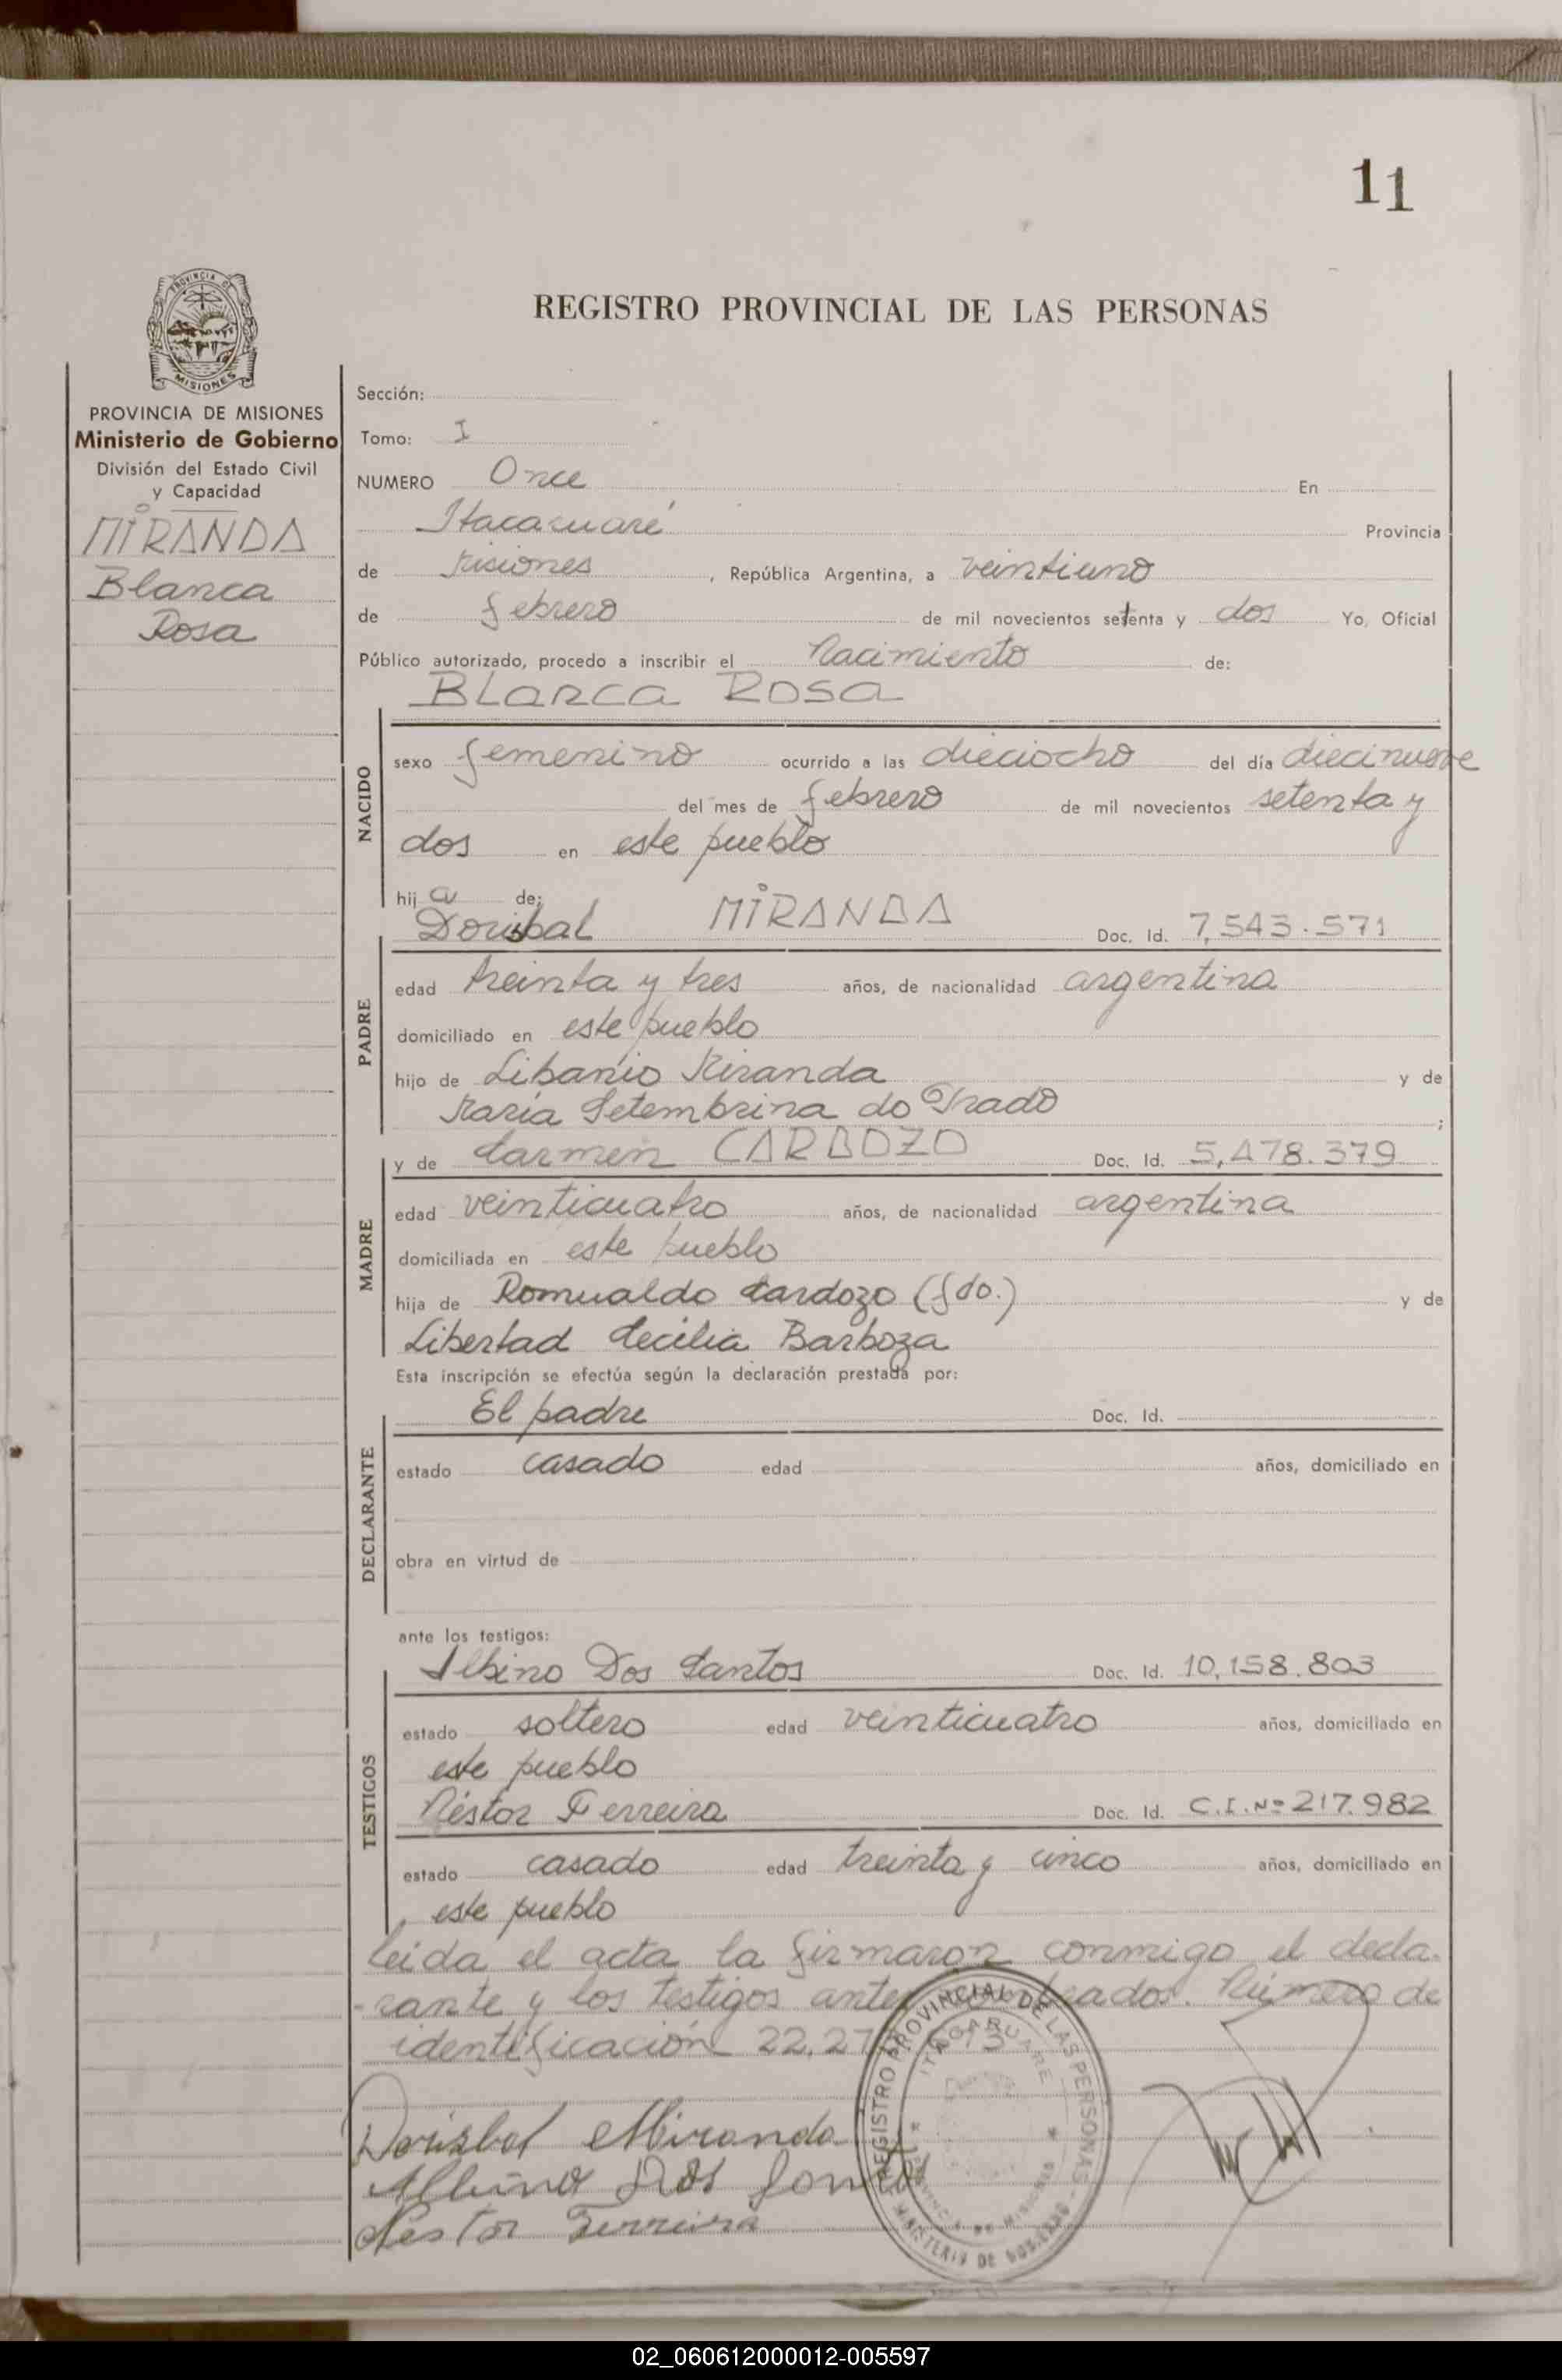 11
PROVINCIA DE
MISIONES
REGISTRO PROVINCIAL DE LAS PERSONAS
PROVINCIA DE MISIONES
Ministerio de Gobierno
División del Estado Civil
y Capacidad
MIRANDA
Blanca
Rosa
Sección:
Tomo: I
NUMERO Once En
Itacaruaré Provincia
de Misiones, República Argentina, a veintiuno
de febrero de mil novecientos setenta y dos Yo, Oficial
Público autorizado, procedo a inscribir el Nacimiento de:
BLANCA ROSA
NACIDO
sexo femenino ocurrido a las dieciocho del día diecinueve
del mes de febrero de mil novecientos setenta y
dos en este pueblo
hij a de:
Dorisbal MIRANDA Doc. Id. 7,543.571
PADRE
edad treinta y tres años, de nacionalidad argentina
domiciliado en este pueblo
hijo de Libanio Miranda y de
María Setembrina do Prado ;
y de Carmen CARDOZO Doc. Id. 5,478.379
MADRE
edad veinticuatro años, de nacionalidad argentina
domiciliada en este pueblo
hija de Romualdo Cardozo (fdo.) y de
Libertad Cecilia Barboza
Esta inscripción se efectúa según la declaración prestada por:
El padre Doc. Id.
DECLARANTE
estado casado edad años, domiciliado en
obra en virtud de
ante los testigos:
Albino Dos Santos Doc. Id. 10,158.803
TESTIGOS
estado soltero edad veinticuatro años, domiciliado en
este pueblo
Néstor Ferreira Doc. Id. C.I.Nº 217.982
estado casado edad treinta y cinco años, domiciliado en
este pueblo
Leida el acta la firmaron conmigo el decla-
-rante y los testigos antes nombrados. Número de
identificación 22.27
REGISTRO PROVINCIAL DE LAS PERSONAS
ITACARUARE
PROVINCIA DE MISIONES
MINISTERIO DE GOBIERNO
Dorisbal Miranda
Albino Dos Santos
Nestor Ferreira
02_060612000012-005597